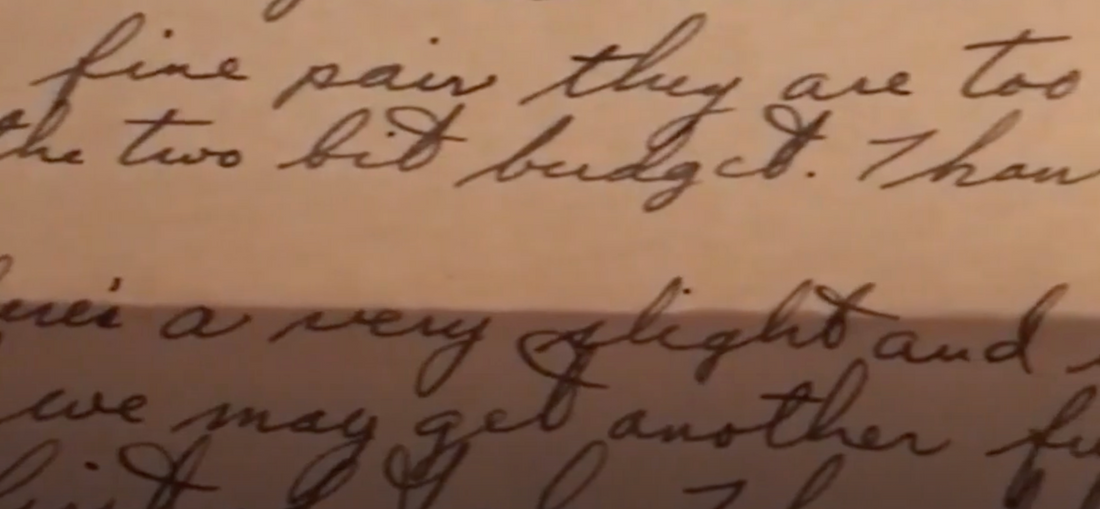 fine pair they are too
the two bit budget. Than
a very slight and
we may get another